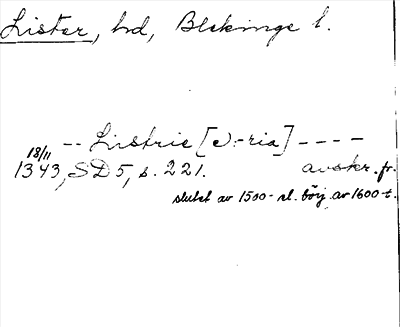 Lister, hd, Blekinge l.
-- Listrie [e:-ria] ----
18/11
1343, SD 5, s. 221. avskr. fr.
slutet av 1500- el. börj. av 1600-t.